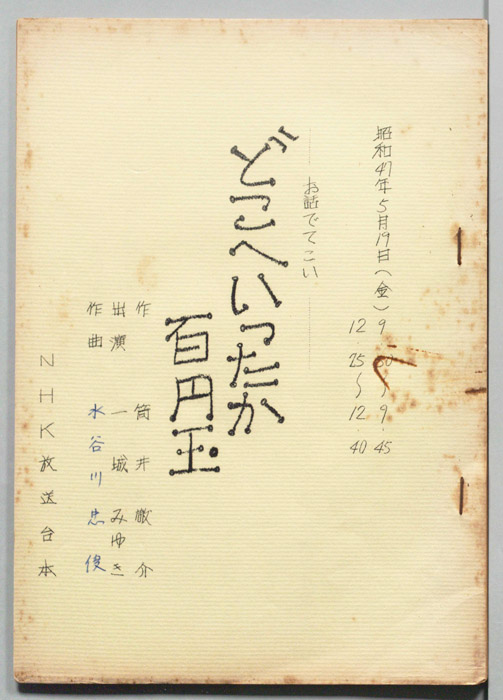 昭和47年5月19日(金)
9.30〜9.45
12.25〜12.40
お話でてこい
どこへいったか
百円玉
作 筒井敬介
出演 一城みゆき
作曲 水谷川忠俊
NHK放送台本